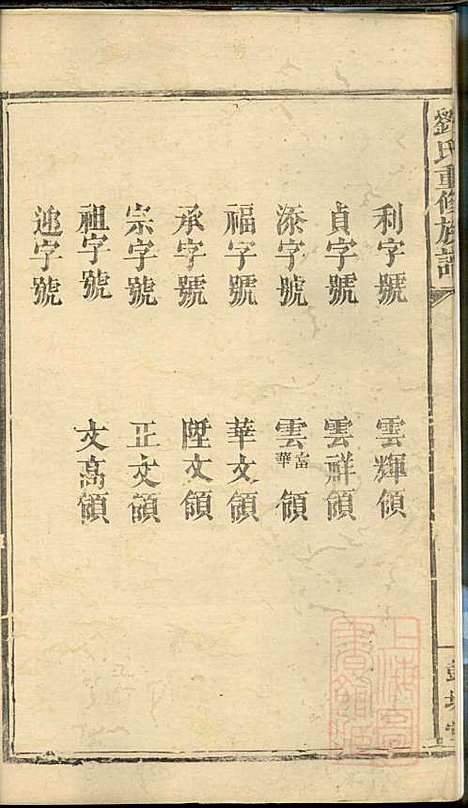 劉氏重修族譜
利字號 雲輝領
貞字號 雲祥領
添字號 雲富華領
福字號 華文領
承字號 陞文領
宗字號 正文領
祖字號 文高領
字號